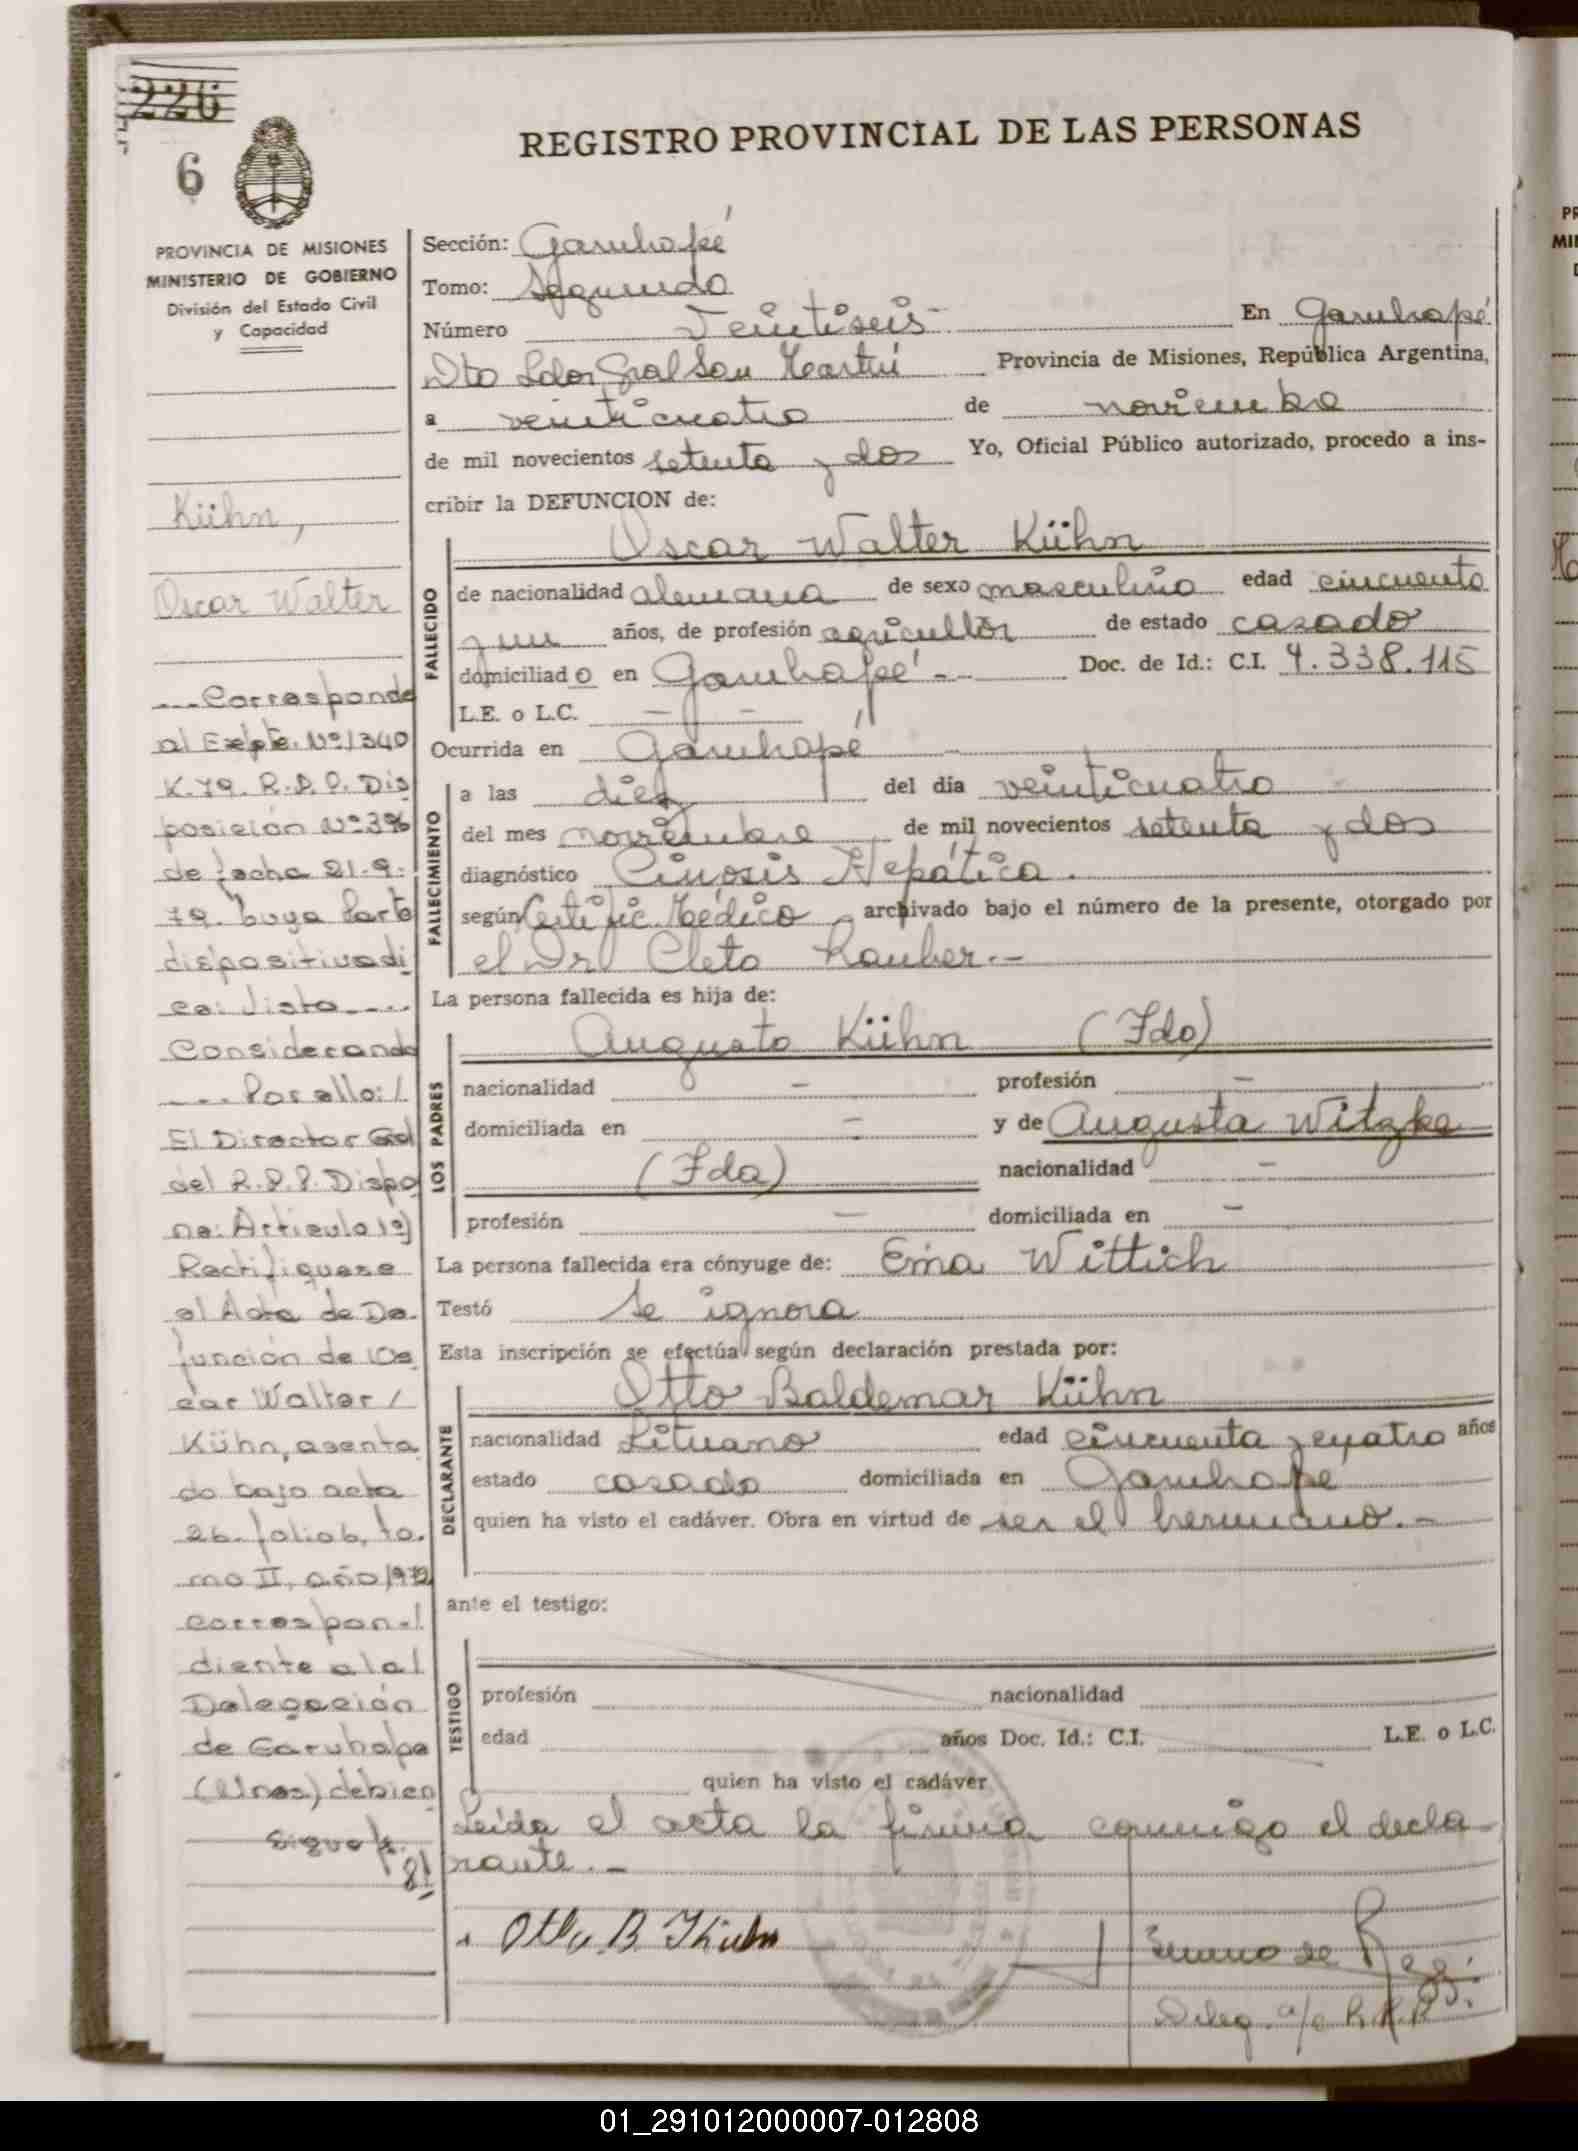 226
6
REGISTRO PROVINCIAL DE LAS PERSONAS
PROVINCIA DE MISIONES
MINISTERIO DE GOBIERNO
División del Estado Civil
y Capacidad
Kühn,
Oscar Walter
---Corresponde
al Expte. Nº1340
K.79. R.P.P. Dis
posición Nº 396
de fecha 21.9.
79. Cuya Parte
dispositiva di
ce: Visto----
Considerando
---Por ello:/
El Director Gral
del R.P.P. Dispo
ne: Articulo 1º)
Rectifiquese
el Acta de De.
función de Os
car Walter/
Kühn, asenta
do bajo acta
26. folio 6, to.
mo II, año 1972
correspon-/
diente a la/
Delegación
de Garuhape
(Mnes) debien
Sigue f.
81
Sección: Garuhapé
Tomo: Segundo
Número Veintiseis En Garuhapé
Dto Ldor Gral San Martin Provincia de Misiones, República Argentina,
a veinticuatro de noviembre
de mil novecientos setenta y dos Yo, Oficial Público autorizado, procedo a ins-
cribir la DEFUNCION de:
Oscar Walter Kühn
FALLECIDO
de nacionalidad alemana de sexo masculino edad cincuenta
y un años, de profesión agricultor de estado casado
domiciliado en Garuhapé -- Doc. de Id.: C.I. 4.338.115
L.E. o L.C. - -
Ocurrida en Garuhapé
FALLECIMIENTO
a las diez del día veinticuatro
del mes noviembre de mil novecientos setenta y dos
diagnóstico Cirrosis Hepática.
según Certific. Médico archivado bajo el número de la presente, otorgado por
el Dr Cleto Rauber.-
La persona fallecida es hija de:
LOS PADRES
Augusto Kühn (Fdo)
nacionalidad - profesión -
domiciliada en - y de Augusta Witzke
(Fda) nacionalidad -
profesión - domiciliada en -
La persona fallecida era cónyuge de: Ema Wittich
Testó se ignora
Esta inscripción se efectúa según declaración prestada por:
DECLARANTE
Otto Baldemar Kühn
nacionalidad Lituano edad cincuenta y cuatro años
estado casado domiciliada en Garuhape
quien ha visto el cadáver. Obra en virtud de ser el hermano.-
ante el testigo:
TESTIGO
profesión nacionalidad
edad años Doc. Id.: C.I. L.E. o L.C.
quien ha visto el cadáver
Leida el acta la firma conmigo el decla-
rante.-
Otto B. Kühn
Deleg. a/c R.P.P.
01_291012000007-012808